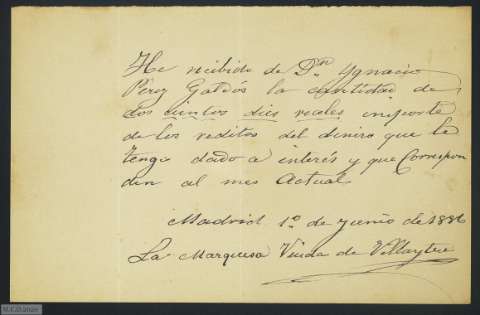 He recibido de Dn Ygnacio
Perez Galdós la cantidad de
dos cientos diez reales importe
de los reditos del dinero que le
tengo dado a interés y que Correspon
den al mes Actual.
Madrid 1º de Junio de 1886
La Marquesa Viuda de